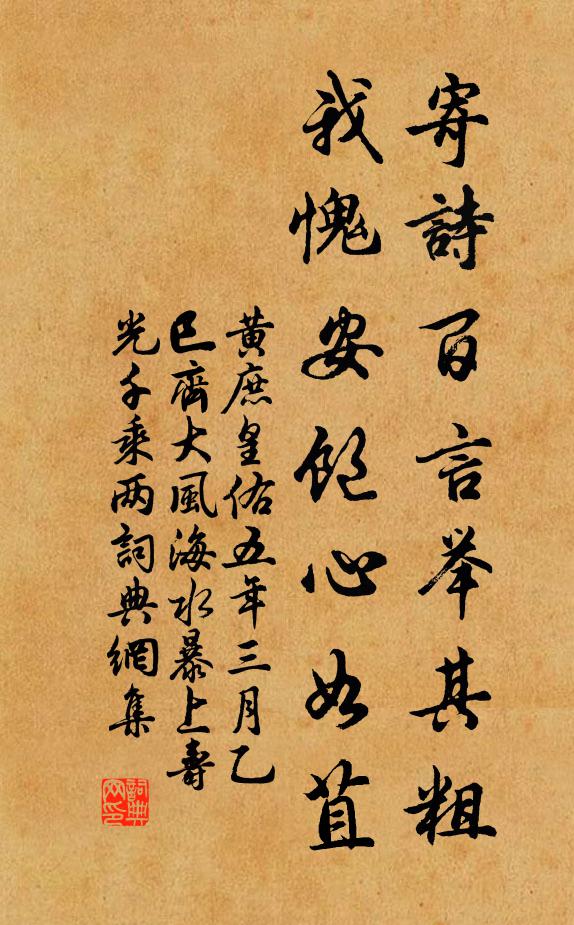 寄詩百言举其粗
我愧安飽心如苴
黃庶皇佑五年三月乙
巳齊大風海水暴上壽
光千乘两詞典網集
詞典
网印